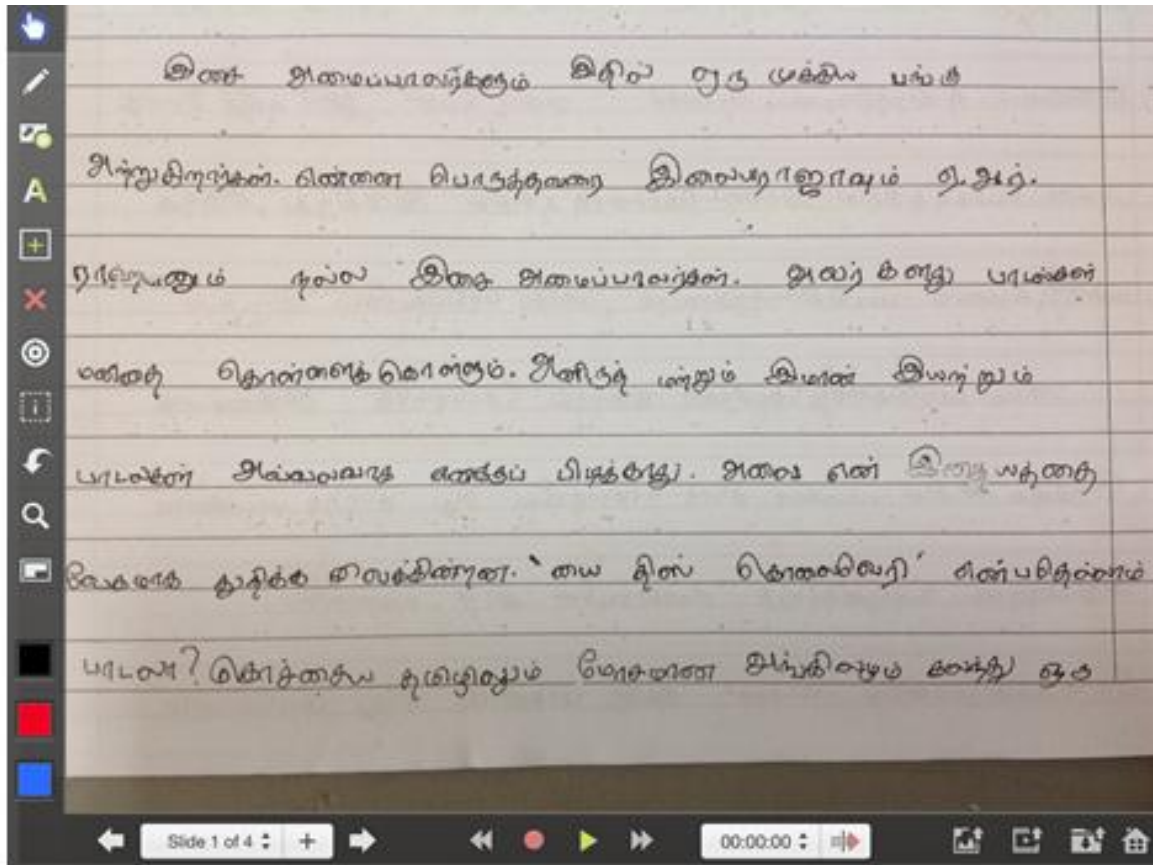 இசை அமைப்பாலர்களும் இதில் ஒரு முக்கிய பங்கு
அற்றுகிறார்கள். என்னை பொருத்தவரை இலையராஜாவும் ஏ.ஆர்.
நல்ல இசை அமைப்பாலர்கள். அவர்களது பாடல்கள்
மனிதை கொள்ளைக்கொள்ளும். அனிருத் மற்றும் இமான் இயற்றும்
பாடல்கள் அவ்வலவாத எனக்குப் பிடிக்காது. அவை என்
வேகமாக துடிக்க வைக்கின்றன. 'வை திஸ் கொலைவெறி' என்பதெல்லாம்
பாடலா? கொச்சைய தமிழிலும் மோசமான கலந்து ஒரு
A
Slide 1 of 4
00:00:00